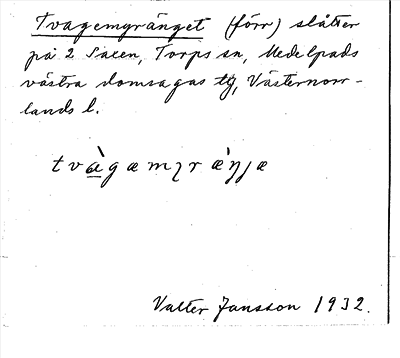 Tvagemyränget (förr) slåtter
på 2 Saxen, Torps sn, Medelpads
västra domsagas tg, Västernorr-
lands l.
tvàgæmyræ̀ŋɟæ
Valter Jansson 1932.